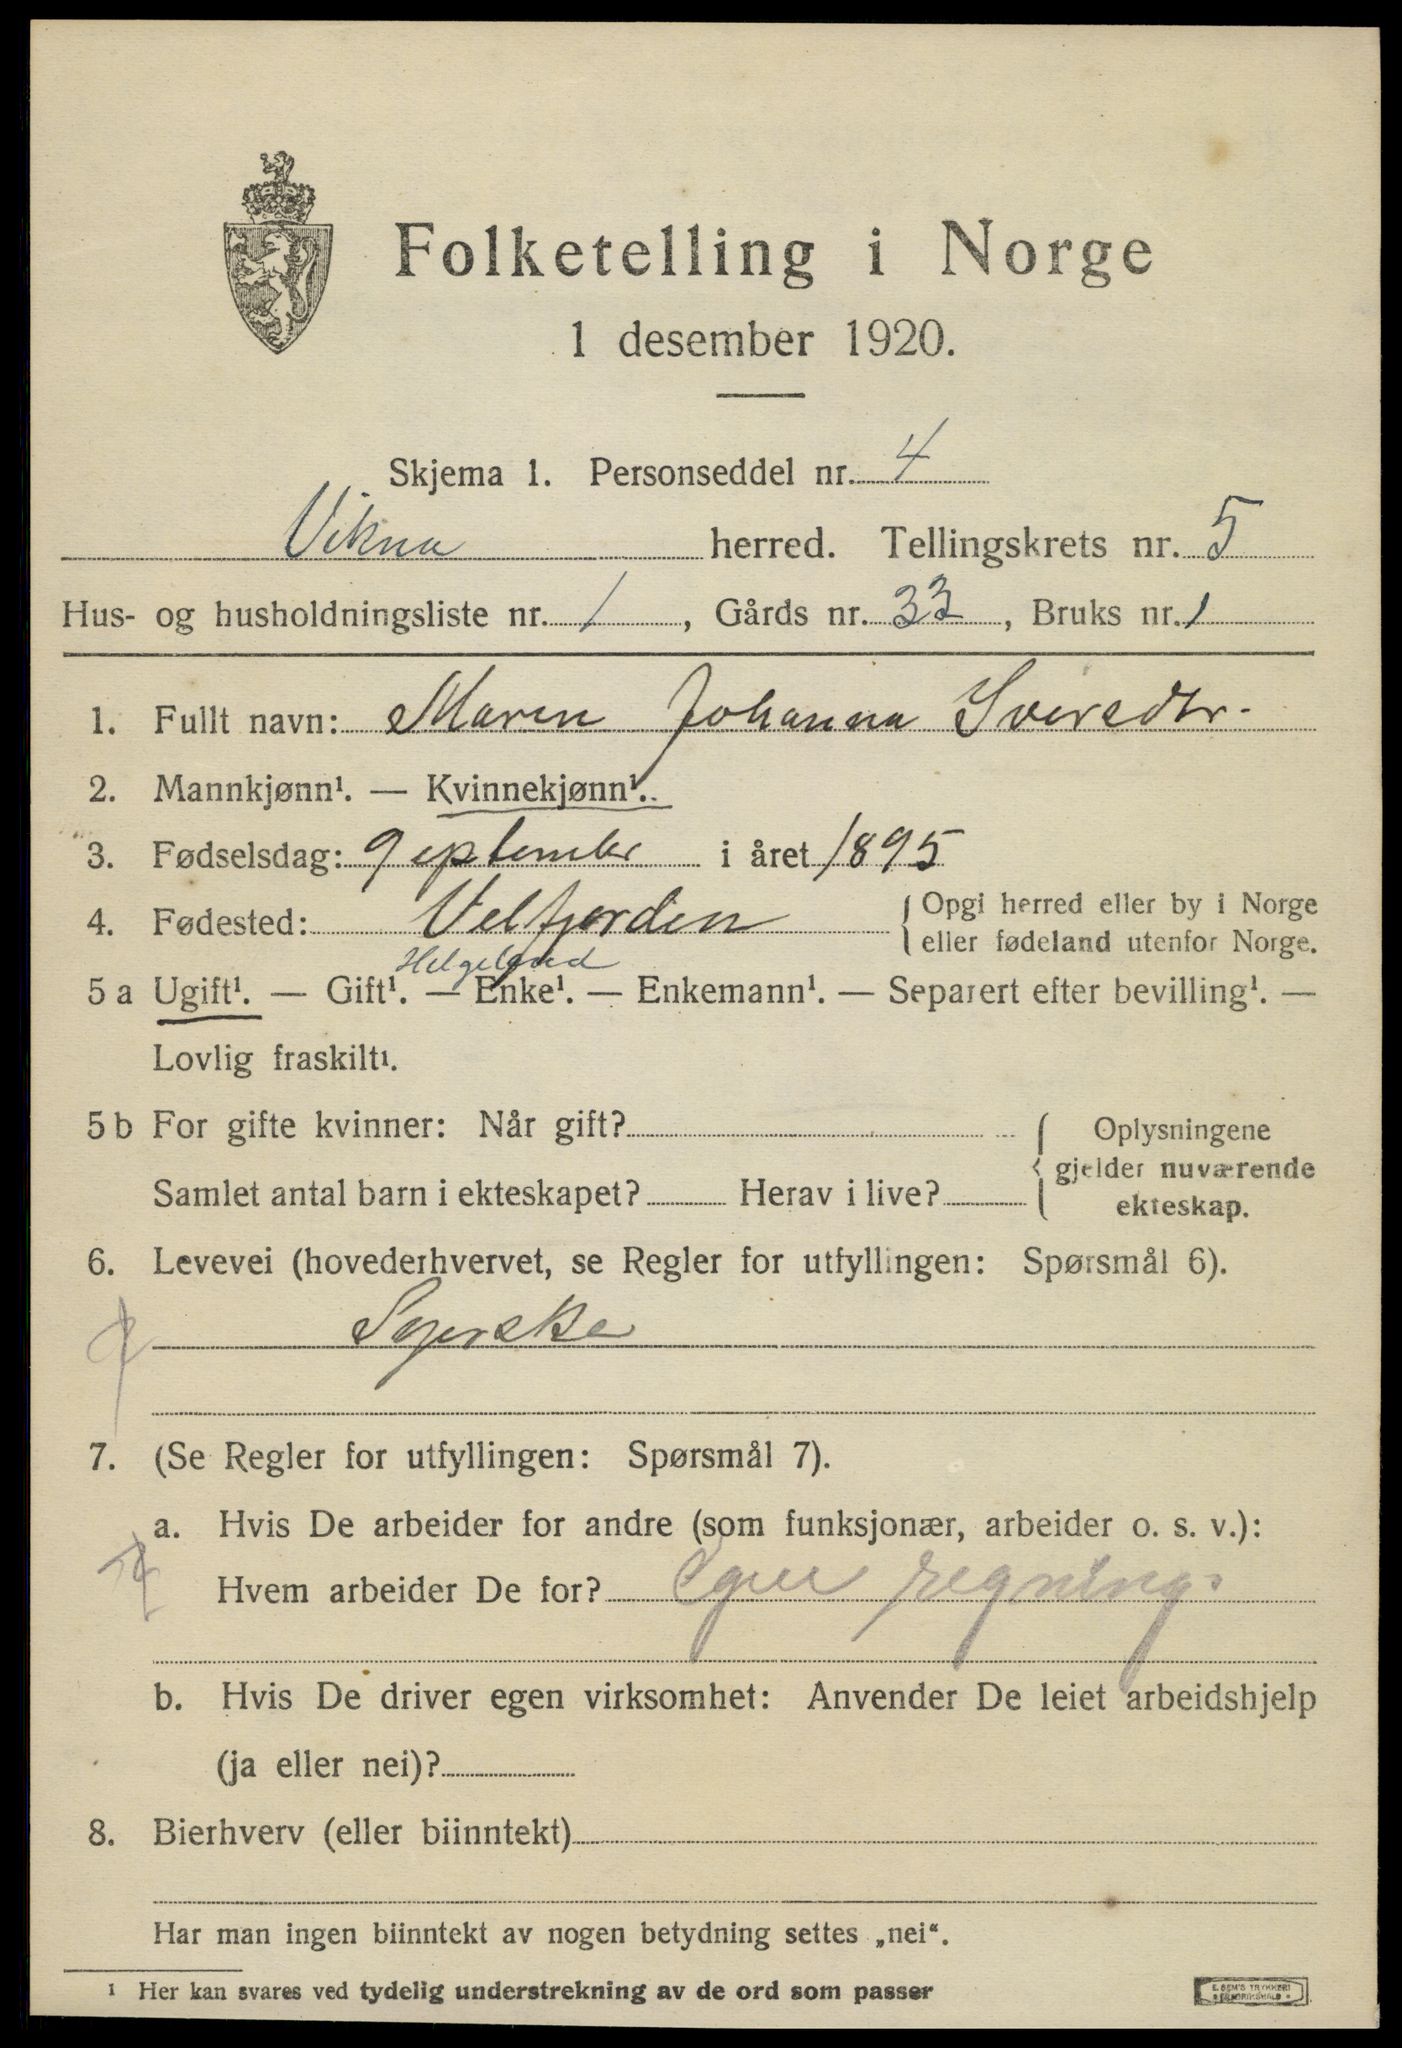 Folketelling i Norge
1 desember 1920.
Skjema 1. Personseddel nr. 4
Vikna herred. Tellingskrets nr. 5
Hus- og husholdningsliste nr. 1, Gårds nr. 33, Bruks nr. 1
1. Fullt navn: Maren Johanna Iversdtr.
2. Mannkjønn¹. — Kvinnekjønn¹.
3. Fødselsdag: 9 september i året 1895
4. Fødested: Velfjorden { Opgi herred eller by i Norge
eller fødeland utenfor Norge.
Helgeland
5 a Ugift¹. — Gift¹. — Enke¹. — Enkemann¹. — Separert efter bevilling¹. —
Lovlig fraskilt¹.
5 b For gifte kvinner: Når gift?
Samlet antal barn i ekteskapet? Herav i live?
{ Oplysningene
gjelder nuværende
ekteskap.
6. Levevei (hovederhvervet, se Regler for utfyllingen: Spørsmål 6).
Syerske
7. (Se Regler for utfyllingen: Spørsmål 7).
a. Hvis De arbeider for andre (som funksjonær, arbeider o. s. v.):
Hvem arbeider De for? Egen regning
b. Hvis De driver egen virksomhet: Anvender De leiet arbeidshjelp
(ja eller nei)?
8. Bierhverv (eller biinntekt)
Har man ingen biinntekt av nogen betydning settes „nei“.
¹ Her kan svares ved tydelig understrekning av de ord som passer
E. SEM'S TRYKKERI
FREDRIKSHALD